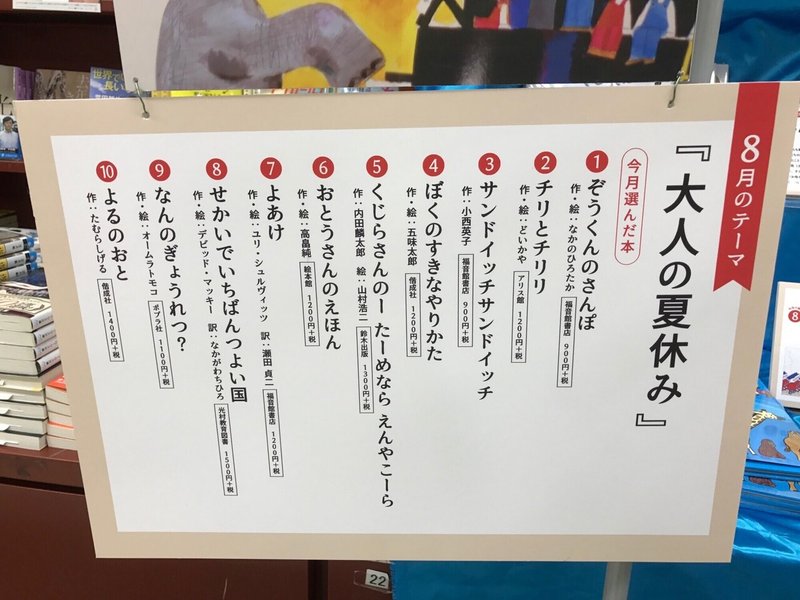 8月のテーマ
『大人の夏休み』
今月選んだ本
1 ぞうくんのさんぽ
作・絵：なかのひろたか 福音館書店 900円+税
2 チリとチリリ
作・絵：どいかや アリス館 1200円+税
3 サンドイッチサンドイッチ
作：小西英子 福音館書店 900円+税
4 ぼくのすきなやりかた
作・絵：五味太郎 偕成社 1200円+税
5 くじらさんのー たーめなら えんやこーら
作：内田麟太郎 絵：山村浩二 鈴木出版 1300円+税
6 おとうさんのえほん
作・絵：高畠純 絵本館 1200円+税
7 よあけ
作・絵：ユリ・シュルヴィッツ 訳：瀬田 貞二 福音館書店 1200円+税
8 せかいでいちばんつよい国
作・絵：デビッド・マッキー 訳：なかがわちひろ 光村教育図書 1500円+税
9 なんのぎょうれつ？
作・絵：オームラトモコ ポプラ社 1100円+税
10 よるのおと
作：たむらしげる 偕成社 1400円+税
世界で
長い
22
8